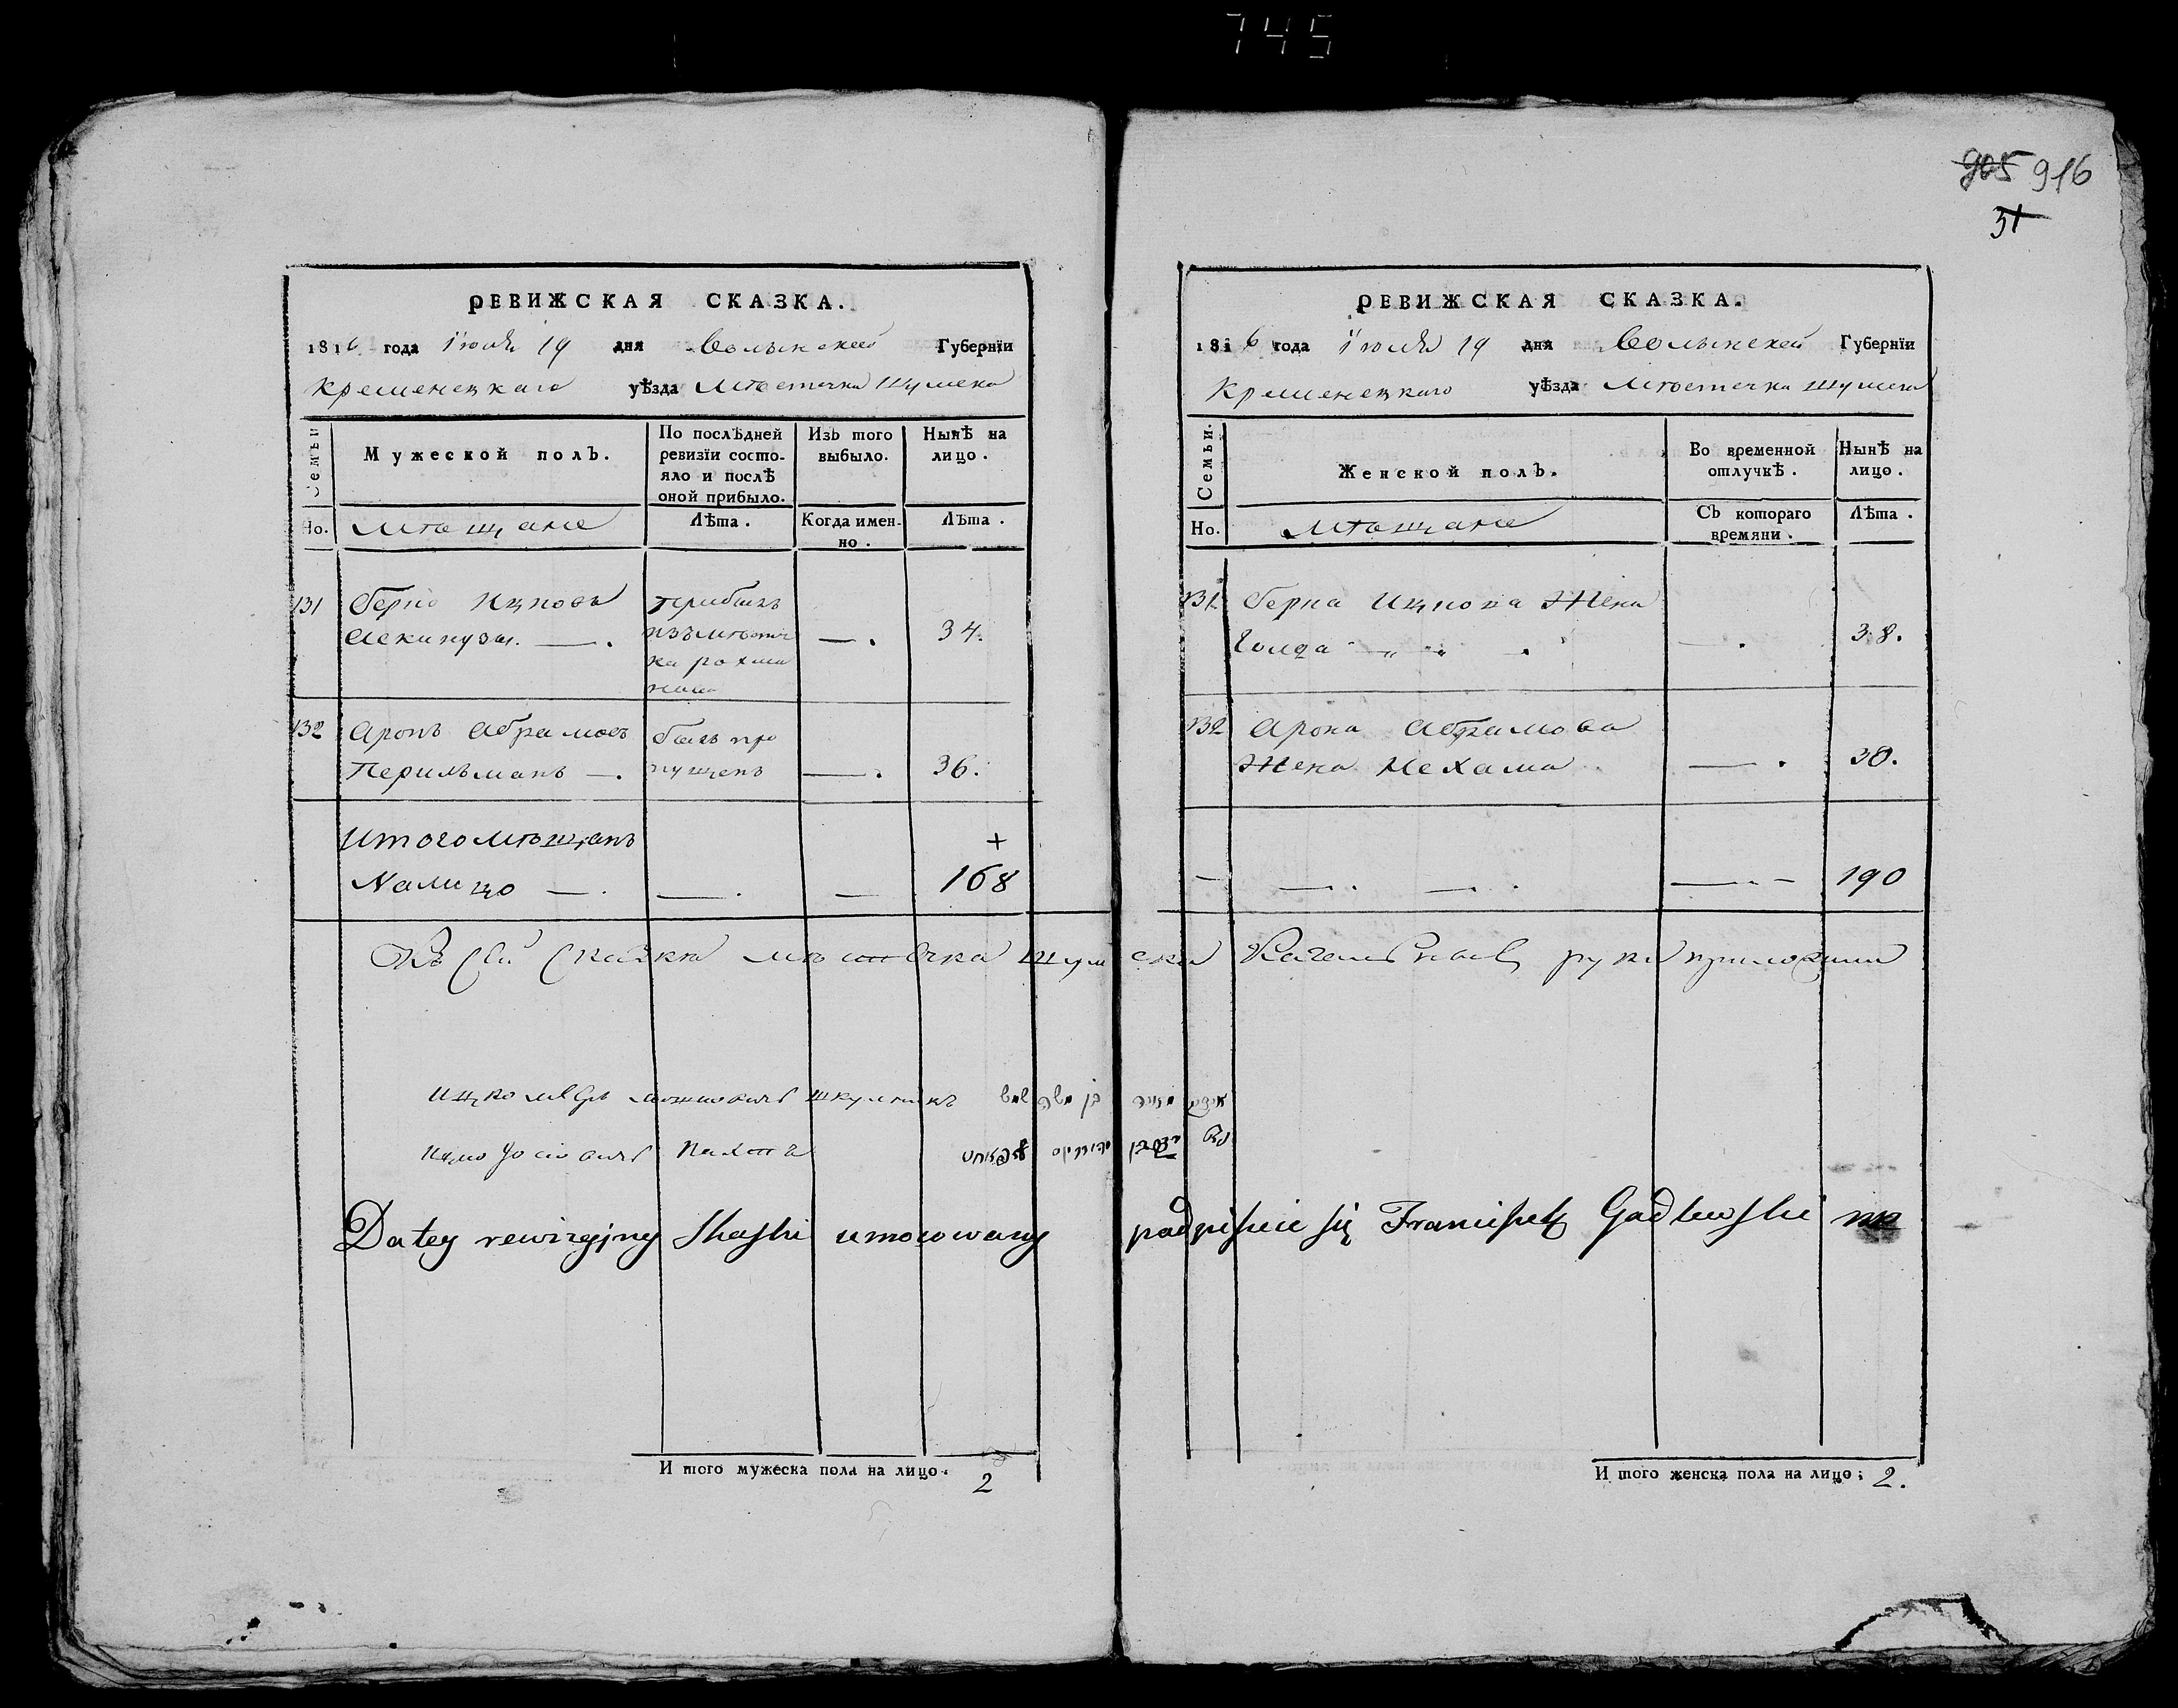 745
905 916
31
РЕВИЖСКАЯ СКАЗКА.
1816 года Июля 19 дня Волынской Губернїи
Кременецкаго уѣзда Мѣстечка Шумска
Семьи
Мужеской полъ.
По послѣдней ревизїи состояло и послѣ оной прибыло.
Изъ того выбыло.
Нынѣ на лицо.
Но. Мѣщане Лѣта. Когда именно. Лѣта.
131 Берко Ицковъ прибылъ
изъ мѣстеч — . 34.
ка рохма
нова
132 Аронъ Абрамовъ былъ про
Перильманъ — . пущенъ — . 36.
Итого мѣщанъ +
На лицо — . — . — 168
РЕВИЖСКАЯ СКАЗКА.
1816 года Июля 19 дня Волынской Губернїи
Кременецкаго уѣзда Мѣстечка Шумска
Семьи.
Женской полъ.
Во временной отлучкѣ.
Нынѣ на лицо.
Но. Мѣщане Съ котораго времяни. Лѣта.
131 Берка Ицкова Жена
Голда — . 38.
132 Арона Абрамова
Жена Нехама — . 30.
— — . . — . . — . — 190
Къ сей скаски мѣстечка Шумска руки приложили
Ицко Меръ Мошковичъ школникъ
Ицко
Datey rewizyjney Skaski umocowany podpisuie się Franciszek mp
И того мужеска пола на лицо. 2
И того женска пола на лицо; 2.